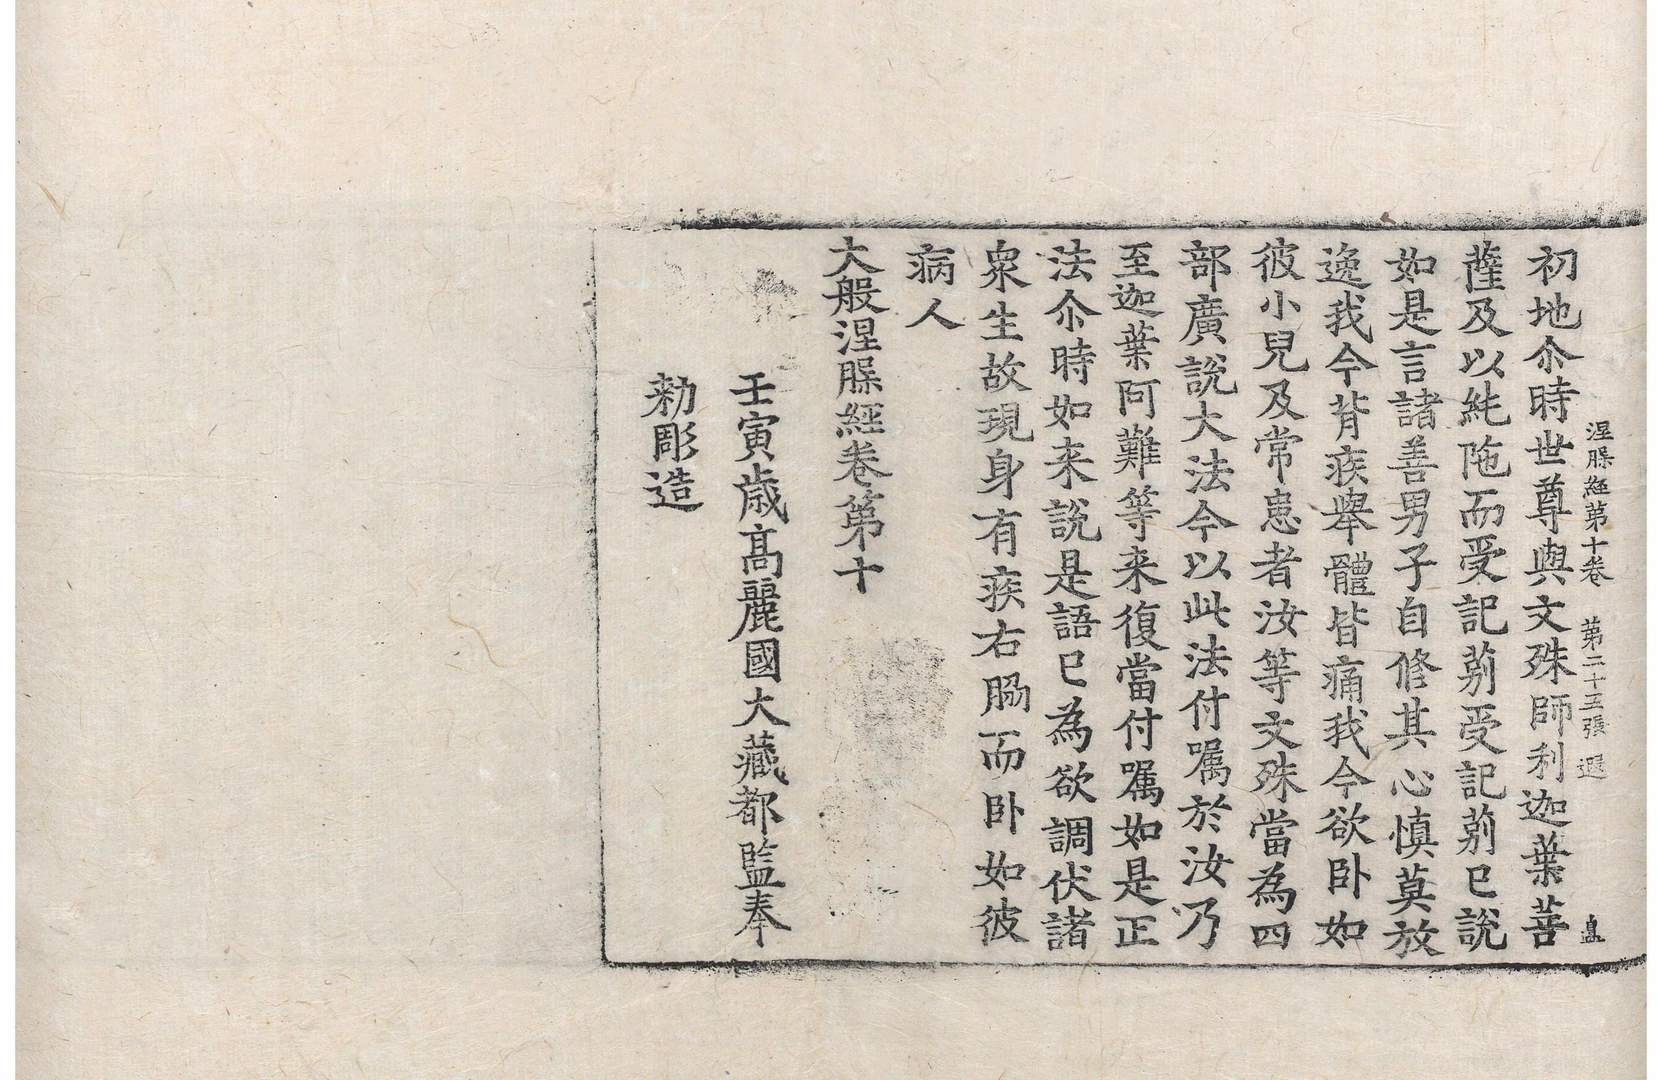 涅槃經第十卷　第二十五張　遐
初地尒時世尊與文殊師利迦葉菩
薩及以純陁而受記莂受記莂已說
如是言諸善男子自修其心慎莫放
逸我今背疾舉體皆痛我今欲卧如
彼小兒及常患者汝等文殊當為四
部廣說大法今以此法付嘱於汝乃
至迦葉阿難等来復當付嘱如是正
法尒時如来說是語已為欲調伏諸
衆生故現身有疾右脇而卧如彼
病人
大般涅槃經卷第十
壬寅歳高麗國大藏都監奉
勑彫造